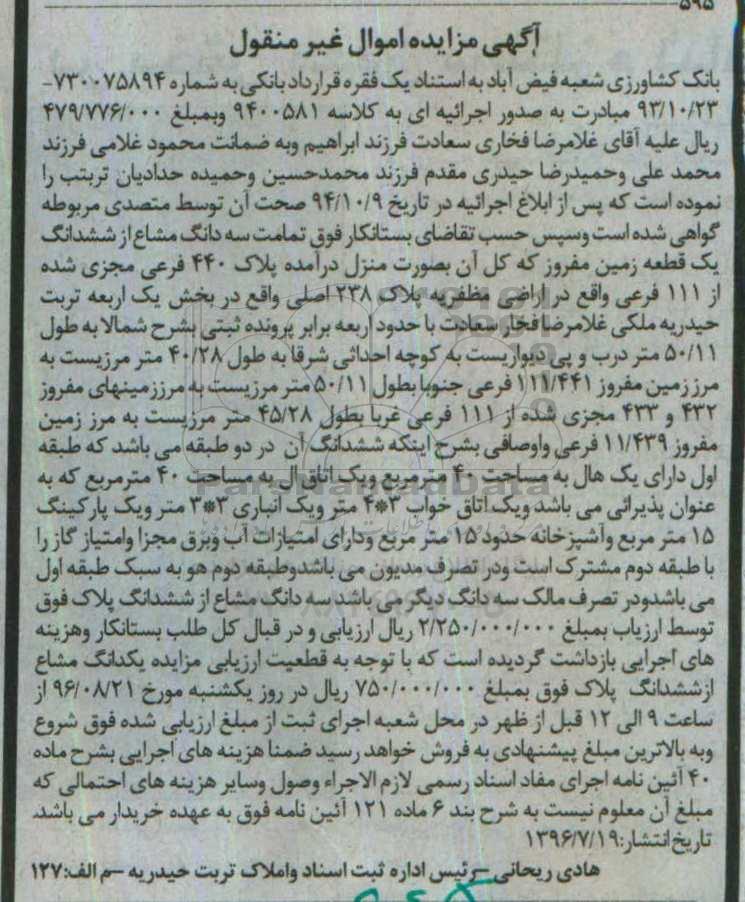 ۵۹۵
آگهی مزایده اموال غیر منقول
بانک کشاورزی شعبه فیض آباد به استناد یک فقره قرارداد بانکی به شماره ۷۳۰۰۷۵۸۹۴-
۹۳/۱۰/۲۳ مبادرت به صدور اجرائیه ای به کلاسه ۹۴۰۰۵۸۱ وبمبلغ ۴۷۹/۷۷۶/۰۰۰
ریال علیه آقای غلامرضا فخاری سعادت فرزند ابراهیم وبه ضمانت محمود غلامی فرزند
محمد علی وحمیدرضا حیدری مقدم فرزند محمدحسین وحمیده حدادیان تربتب را
نموده است که پس از ابلاغ اجرائیه در تاریخ ۹۴/۱۰/۹ صحت آن توسط متصدی مربوطه
گواهی شده است وسپس حسب تقاضای بستانکار فوق تمامت سه دانگ مشاع از ششدانگ
یک قطعه زمین مفروز که کل آن بصورت منزل درآمده پلاک ۴۴۰ فرعی مجزی شده
از ۱۱۱ فرعی واقع در اراضی مظفریه پلاک ۲۳۸ اصلی واقع در بخش یک اربعه تربت
حیدریه ملکی غلامرضا فخار سعادت با حدود اربعه برابر پرونده ثبتی بشرح شمالا به طول
۵۰/۱۱ متر درب و پی دیواریست به کوچه احداثی شرقا به طول ۴۰/۲۸ متر مرزیست به
مرز زمین مفروز ۱۱۱/۴۴۱ فرعی جنوبا بطول ۵۰/۱۱ متر مرزیست به مرززمینهای مفروز
۴۳۲ و ۴۳۳ مجزی شده از ۱۱۱ فرعی غربا بطول ۴۵/۲۸ متر مرزیست به مرز زمین
مفروز ۱۱/۴۳۹ فرعی واوصافی بشرح اینکه ششدانگ آن در دو طبقه می باشد که طبقه
اول دارای یک هال به مساحت ۴۰ مترمربع ویک اتاق ال به مساحت ۴۰ مترمربع که به
عنوان پذیرائی می باشد ویک اتاق خواب ۳*۴ متر ویک انباری ۳*۳ متر ویک پارکینگ
۱۵ متر مربع وآشپزخانه حدود ۱۵ متر مربع ودارای امتیازات آب وبرق مجزا وامتیاز گاز را
با طبقه دوم مشترک است ودر تصرف مدیون می باشدوطبقه دوم هو به سبک طبقه اول
می باشدودر تصرف مالک سه دانگ دیگر می باشد سه دانگ مشاع از ششدانگ پلاک فوق
توسط ارزیاب بمبلغ ۲/۲۵۰/۰۰۰/۰۰۰ ریال ارزیابی و در قبال کل طلب بستانکار وهزینه
های اجرایی بازداشت گردیده است که با توجه به قطعیت ارزیابی مزایده یکدانگ مشاع
ازششدانگ پلاک فوق بمبلغ ۷۵۰/۰۰۰/۰۰۰ ریال در روز یکشنبه مورخ ۹۶/۰۸/۲۱ از
ساعت ۹ الی ۱۲ قبل از ظهر در محل شعبه اجرای ثبت از مبلغ ارزیابی شده فوق شروع
وبه بالاترین مبلغ پیشنهادی به فروش خواهد رسید ضمنا هزینه های اجرایی بشرح ماده
۴۰ آئین نامه اجرای مفاد اسناد رسمی لازم الاجراء وصول وسایر هزینه های احتمالی که
مبلغ آن معلوم نیست به شرح بند ۶ ماده ۱۲۱ آئین نامه فوق به عهده خریدار می باشد.
تاریخ انتشار:۱۳۹۶/۷/۱۹
هادی ریحانی -رئیس اداره ثبت اسناد واملاک تربت حیدریه -م الف:۱۲۷
ParsNamadData